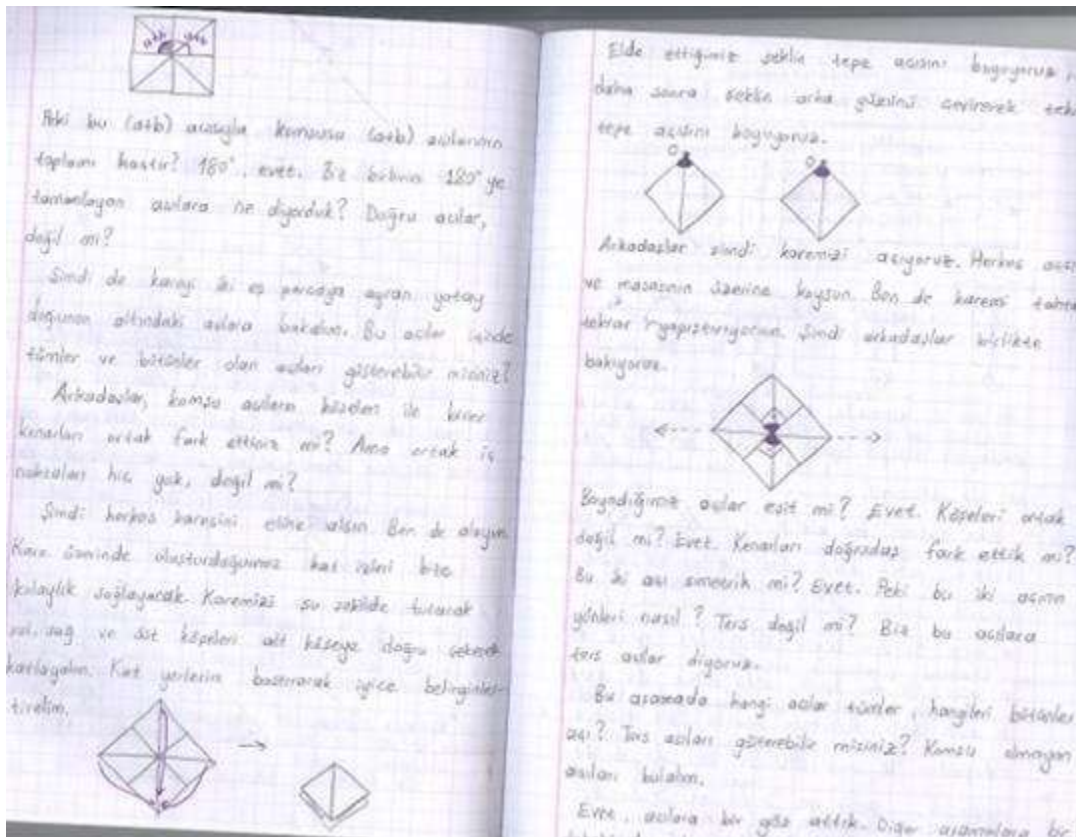 a+b a+b
Peki bu (a+b) açısıyla komşusu (a+b) açılarının
toplamı kaçtır? 180°, evet. Biz birbirini 180° ye
tamamlayan açılara ne diyorduk? Doğru açılar,
değil mi?
Şimdi de kareyi iki eş parçaya ayıran yatay
doğunun altındaki açılara bakalım. Bu açılar içinde
tümler ve bütünler olan açıları gösterebilir misiniz?
Arkadaşlar, komşu açıların köşeleri ile birer
kenarları ortak fark ettiniz mi? Ama ortak iç
noktaları hiç yok, değil mi?
Şimdi herkes karesini eline alsın. Ben de alayım.
Kare üzerinde oluşturduğumuz kat izini bize
kolaylık sağlayacak. Karemizi şu şekilde tutarak
sol, sağ ve üst köşeleri alt köşeye doğru çekerek
katlayalım. Kat yerlerini bastırarak iyice belirginleş-
tirelim.
Elde ettiğimiz şeklin tepe açısını boyuyoruz
daha sonra şeklin arka yüzünü çevirerek
tepe açısını boyuyoruz.
O O
Arkadaşlar şimdi karemizi açıyoruz. Herkes
ve masasının üzerine koysun. Ben de karemi
tekrar yapıştırıyorum. Şimdi arkadaşlar birlikte
bakıyoruz.
Boyadığımız açılar eşit mi? Evet. Köşeleri ortak
değil mi? Evet. Kenarları doğrudaş fark ettik mi?
Bu iki açı simetrik mi? Evet. Peki bu iki açının
yönleri nasıl? Ters değil mi? Biz bu açılara
ters açılar diyoruz.
Bu aşamada hangi açılar tümler, hangileri bütünler
açı? Ters açıları gösterebilir misiniz? Komşu olmayan
açıları bulalım.
Evet, açılara bir göz attık. Diğer aşamalara